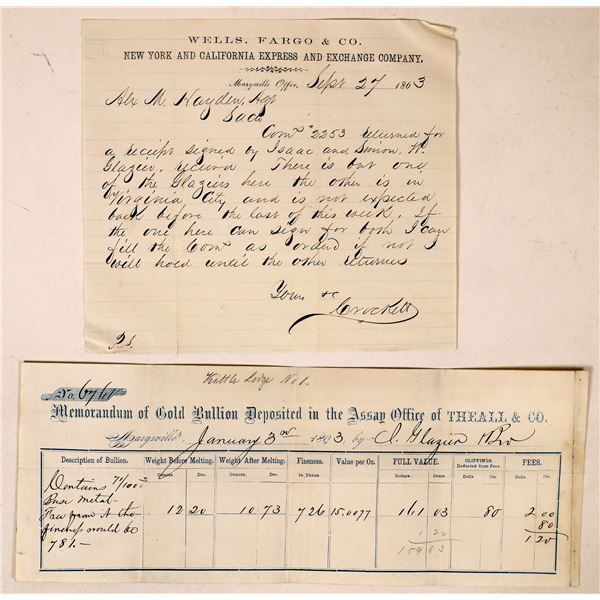 WELLS, FARGO & CO.
NEW YORK AND CALIFORNIA EXPRESS AND EXCHANGE COMPANY,
Marysville Office, Sept 27 1863
Alex M. Hayden, Agt
Sac
Com 2253 returned for
a receipt signed by Isaac and Simon W.
Glazier, received There is but one
of the Glaziers here the other is in
Virginia City, and is not expected
back before the last of this week. If
the one here can sign for both I can
fill the Com as orderd if not I
will hold until the other returnes
Yours &c
Crockett
No. 6761
Memorandum of Gold Bullion Deposited in the Assay Office of THEALL & CO.
Marysville, January 3rd 1863 by I. Glazier & Bro
Description of Bullion. Weight Before Melting. Weight After Melting. Fineness. Value per Oz. FULL VALUE. CLIPPINGS, Deducted from Fees. FEES.
Ounces. Dec. Ounces. Dec. In Thous. Dollars. Cents. Dolls. Cts. Dolls. Cts.
Contains 71/1000
Base metal-
Free from it the
fineness would be
781.-
12 20 10 73 726 15.0077 161 03 80 2 00
80
1 20 1 20
159 83